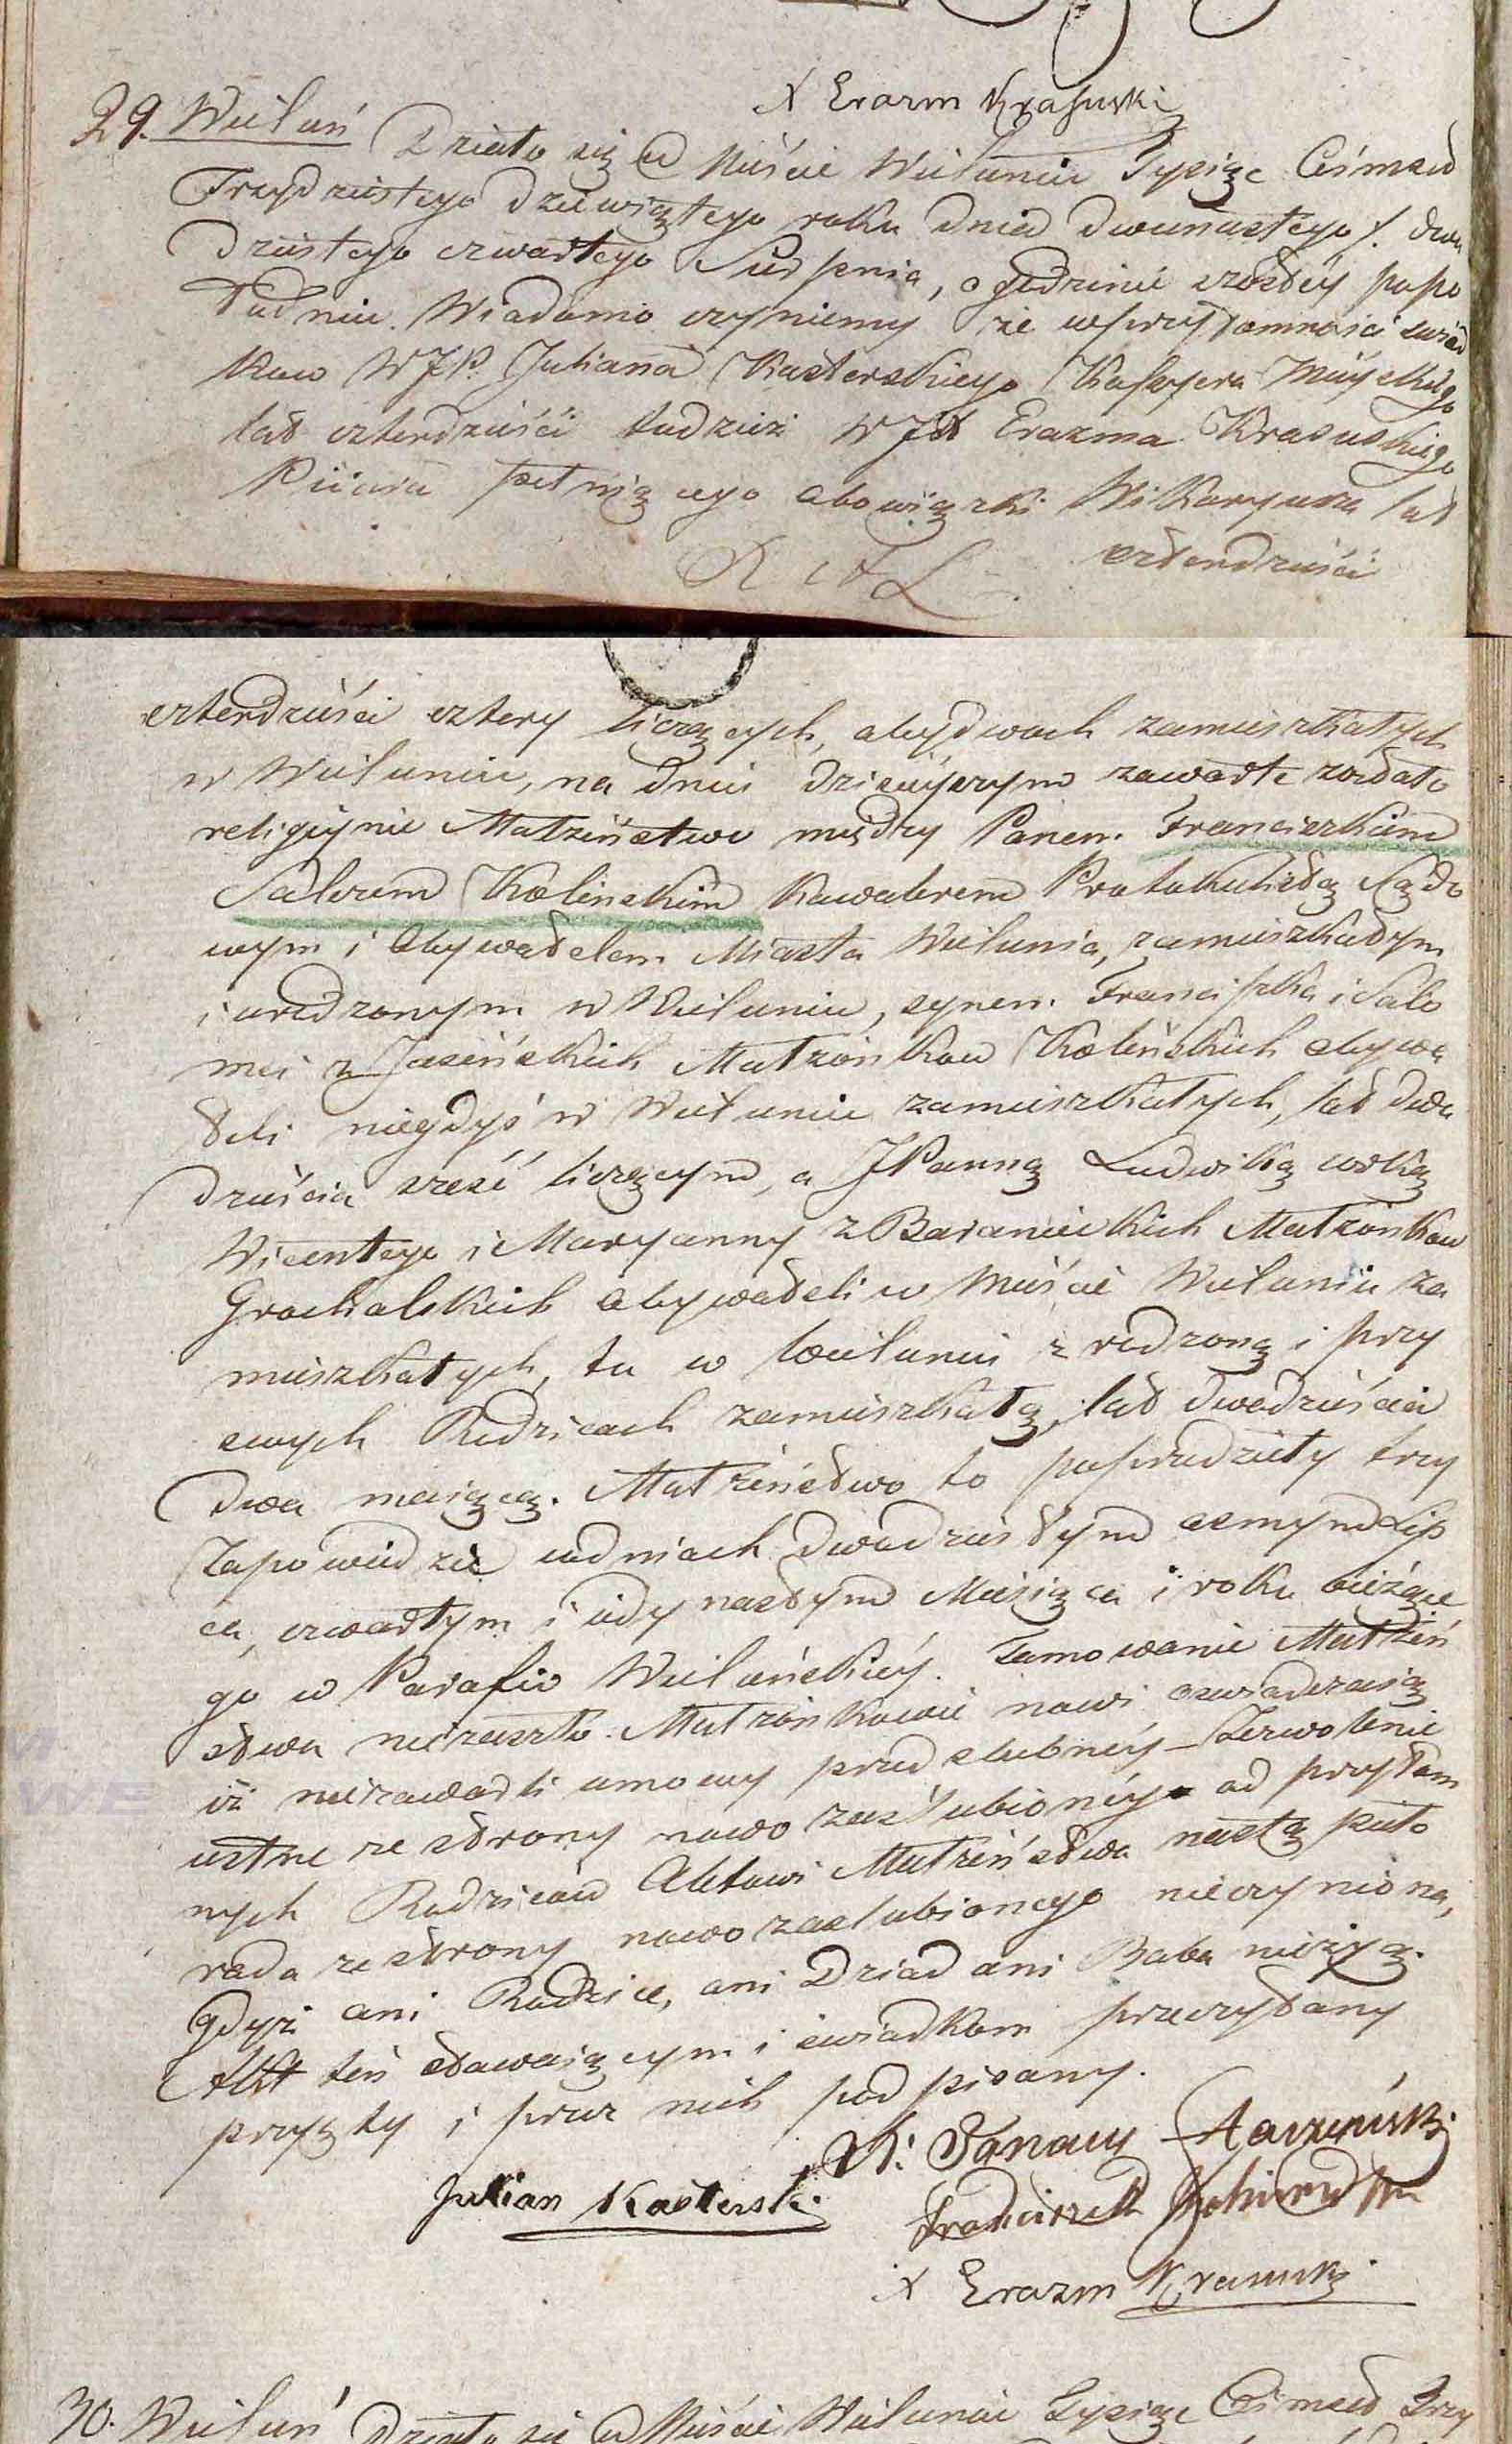 X Erazm Krasuski
29. Wieluń Działo się w Mieście Wieluniu Tysiąc Ośmset
Trzydziestego dziewiątego roku dnia dwunastego /. dwu
dziestego czwartego Sierpnia, o godzinie szóstey popo
łudniu. Wiadomo czyniemy że w przytomności świad
kow WJP. Juliana Kasterskiego Kassyera Mieyskiego
lat czterdzieści tudzież WJX Erazma Krasuskiego
Piiara pełniącego obowiązki Wikaryusza lat
czterdzieści
czterdzieści cztery liczących, obydwoch zamieszkałych
w Wieluniu, na dniu dzisieyszym zawarte zostało
religiynie Małżeństwo między Panem Franciszkiem
Salezem Kolinskim Kawalerem Protokulistą Sądo
wym i Obywatelem Miasta Wielunia, zamieszkałym
i urodzonym w Wieluniu, synem Franciszka i Salo
mei z Jasińskich Małżonkow Kolińskich obywa
teli niegdyś w Wieluniu zamieszkałych, lat dwa
dzieścia sześć liczącym, a JPanną Ludwiką córką
Wicentego i Maryanny z Baranieckich Małżonkow
Grochalskich Obywateli w Mieście Wieluniu za
mieszkałych, tu w Wieluniu zrodzoną i przy
swych Rodzicach zamieszkałą, lat dwadzieścia
dwa maiącą. Małżeństwo to poprzedziły trzy
Zapowiedzie w dniach dwudziestym osmym Lip
ca, czwartym i iedynastym Miesiąca i roku bieżące
go w Parafii Wieluńskiey. Tamowanie Małżeń
stwa niezaszło. Małżonkowie nowi oswiadczaią
iż niezawarli umowy przedślubney – Zezwolenie
ustne ze strony nowo zaślubioney od przytom
nych Rodzicow Aktowi Małżeństwa nastąpiło
rada ze strony nowozaślubionego nieczyniona,
gdyż ani Rodzice, ani Dziad ani Baba nieżyją.
Akt ten stawaiącym i swiadkom przeczytany
przyięty i przez nich podpisany.
X. Ignacy
Julian Kasterski
Franciszek
X Erazm Krasuski
30. Wieluń Działo się w Mieście Wieluniu Tysiąc Ośmset Trzy